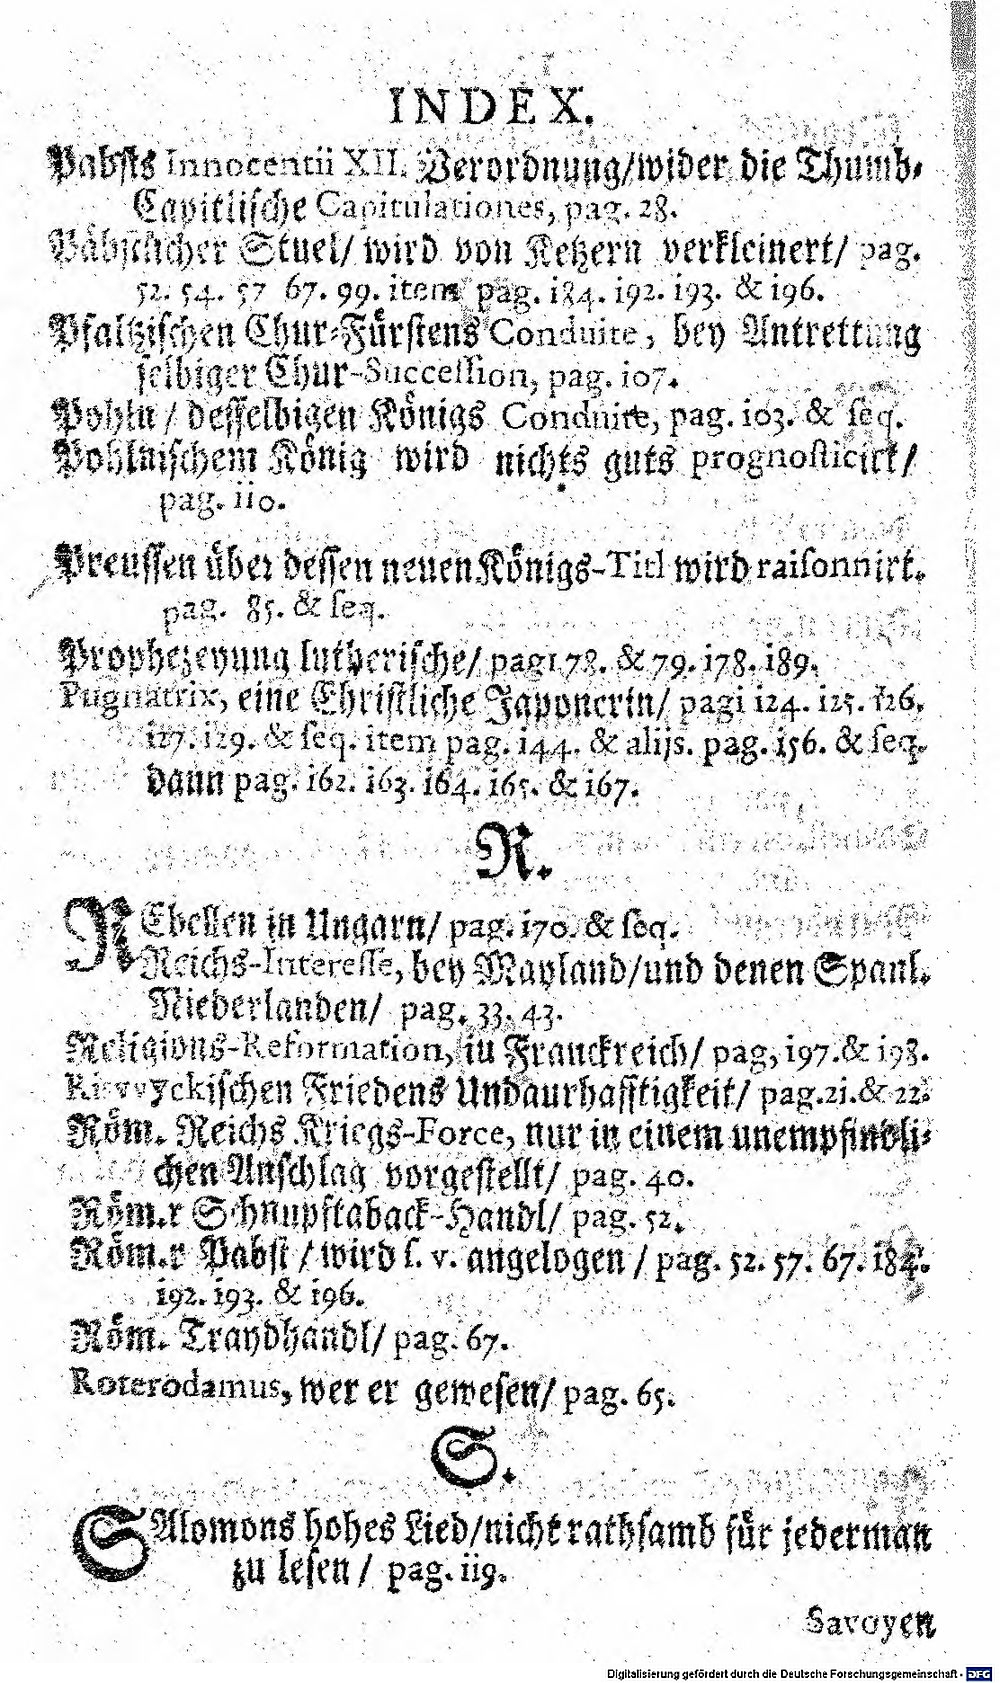 INDEX.
Pabsts Innocentii XII. Verordnung/wider die Thumb-
Capitlische Capitulationes, pag. 28.
Päbstlicher Stuel/ wird von Ketzern verkleinert/ pag.
52. 54. 57 67. 99. item pag. 184. 192. 193. & 196.
Pfaltzischen Chur-Fürstens Conduite, bey Antrettung
selbiger Chur-Succession, pag. 107.
Pohln / desselbigen Königs Conduite, pag. 103. & seq.
Pohlnischem König wird nichts guts prognosticirt /
pag. 110.
Preussen über dessen neuen Königs-Titl wird raisonnirt.
pag. 85. & seq.
Prophezeyung lutherische/ pag. 78. & 79. 178. 189.
Pugnatrix, eine Christliche Japonerin/ pag. 124. 125. 126.
127. 129. & seq. item pag. 144. & alijs. pag. 156. & seq.
dann pag. 162. 163. 164. 165. & 167.
R.
REbellen in Ungarn/ pag. 170. & seq.
Reichs-Interesse, bey Mayland/und denen Spanl.
Niederlanden/ pag. 33. 43.
Religions-Reformation, in Franckreich/ pag, 197. & 198.
Riswyckischen Friedens Undaurhafftigkeit/ pag. 21. & 22.
Röm. Reichs Kriegs-Force, nur in einem unempfindli-
chen Anschlag vorgestellt/ pag. 40.
Röm.r Schnupftaback-Handl/ pag. 52.
Röm.r Pabst / wird s. v. angelogen / pag. 52. 57. 67. 184.
192. 193. & 196.
Röm. Traydhandl/ pag. 67.
Roterodamus, wer er gewesen/ pag. 65.
S.
SAlomons hohes Lied/nicht rathsamb für jederman
zu lesen / pag. 119.
Savoyen
Digitalisierung gefördert durch die Deutsche Forschungsgemeinschaft - DFG